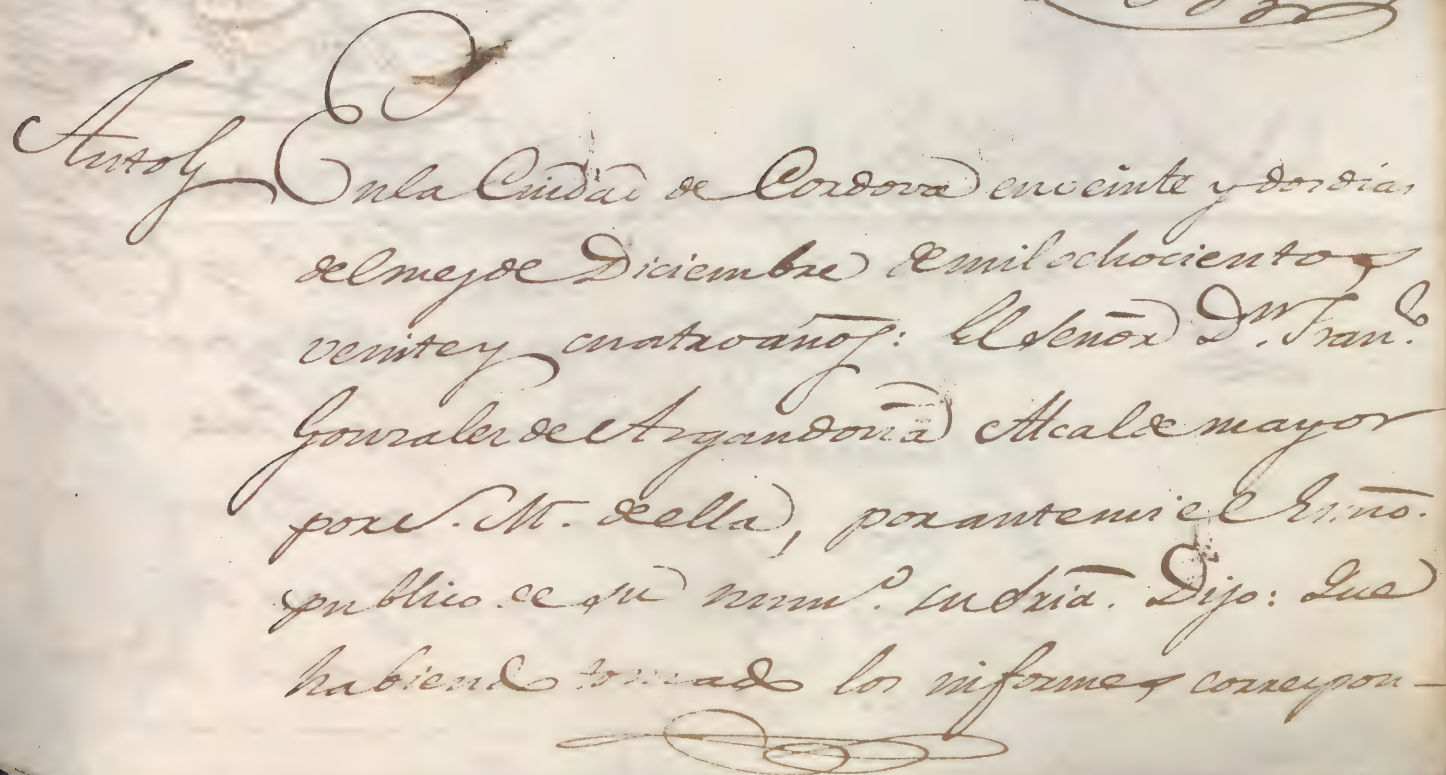 Auto
En la Ciudad de Cordova en veinte y dos dias
del mes de Diciembre de mil ochocientos
veinte y cuatro años: El Señor Dn. Franco.
Gonzalez de Argandoña Alcalde mayor
por S. M. de ella, por ante mi el Esno.
publico de su numo. su sria. Dijo: Que
habiendo tomado los informes correspon-